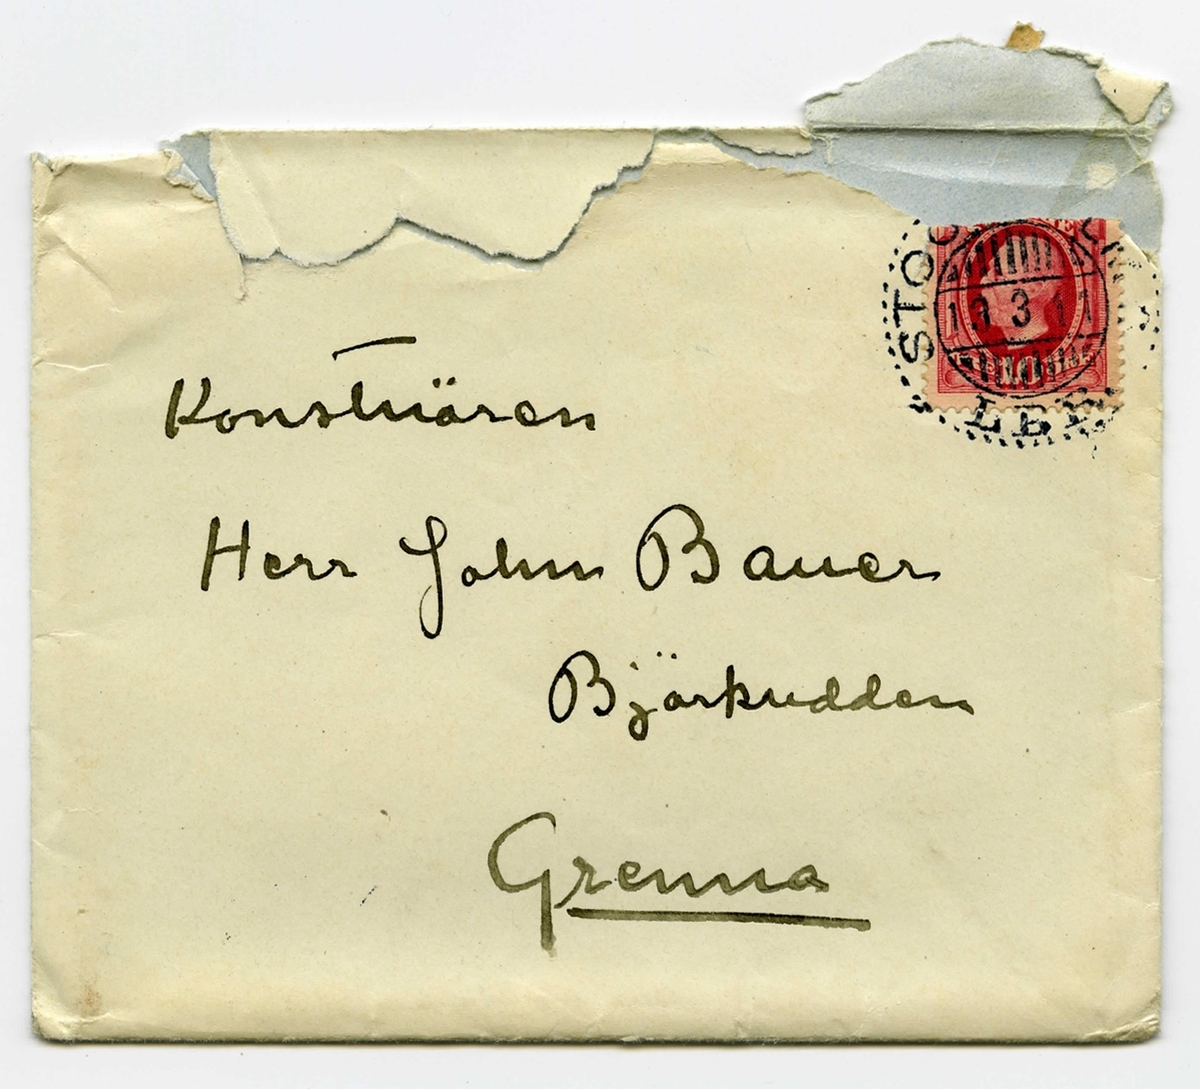 STOC
13 3 11
10
LBR
Konstnären
Herr John Bauer
Björkudden
Grenna